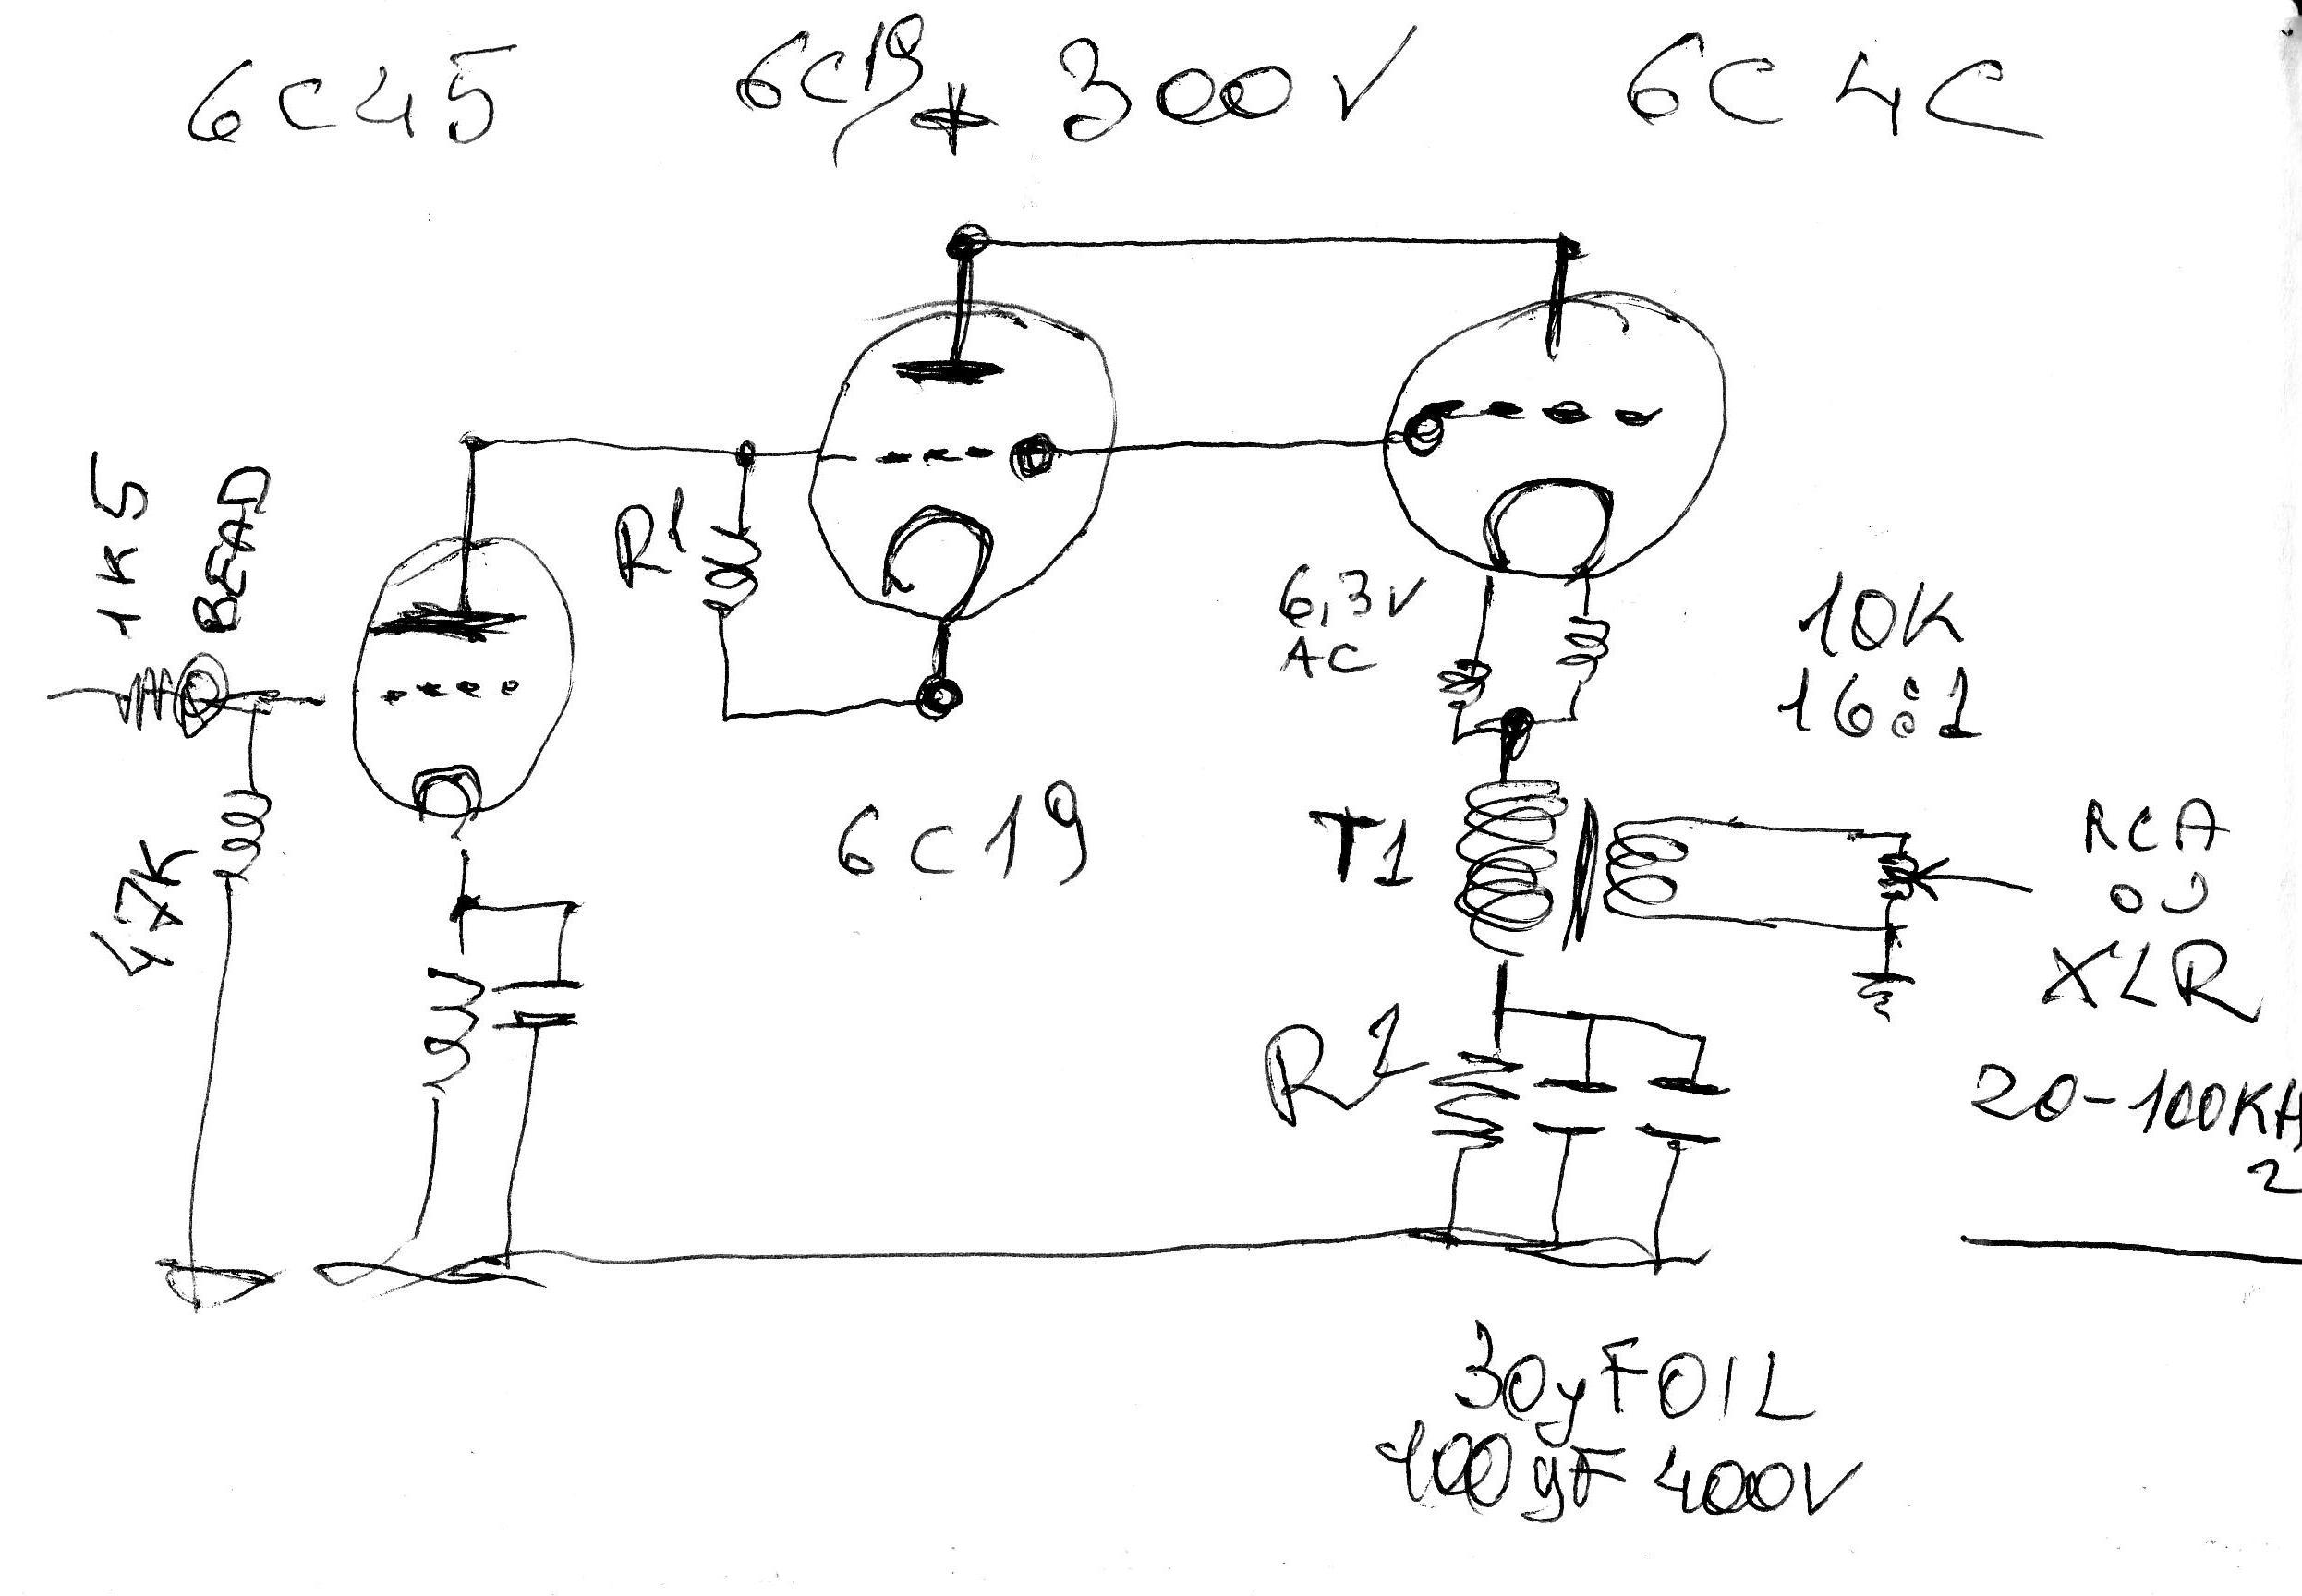 6C45
6C19
+ 300V
6C4C
1K5
BEAD
R1
6,3V
AC
10K
16:1
47K
6C19
T1
RCA
OU
XLR
20-100KH
z
R2
30µF OIL
100µF 400V